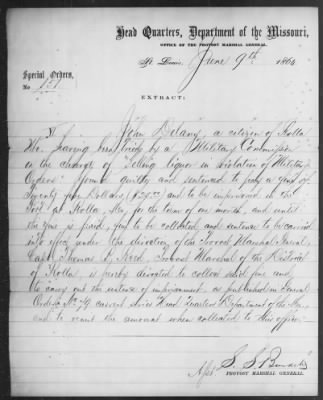 Head Quarters, Department of the Missouri,
OFFICE OF THE PROVOST MARSHAL GENERAL,
St. Louis, June 9th 1864
Special Orders,
No 151.
EXTRACT:
V John Delany, a citizen of Rolla
Mo. having been tried by a Military Commission
on the charge of "Selling liquor in violation of Military
Orders" found guilty and sentenced to pay a fine of
Twenty five Dollars ($25.00) and to be imprisoned in the
Fort at Rolla, Mo, for the term of one month, and until
the fine is paid, fine to be collected and sentence to be carried
into effect under the direction of the Provost Marshal General,
Capt Thomas Reed, Provost Marshal of the District
of Rolla, is hereby directed to collect said fine and
to carry out the sentence of imprisonment as published in General
Orders No 79 current series Head Quarters Department of the Mo.,
and to remit the amount when collected to this office.
PROVOST MARSHAL GENERAL.